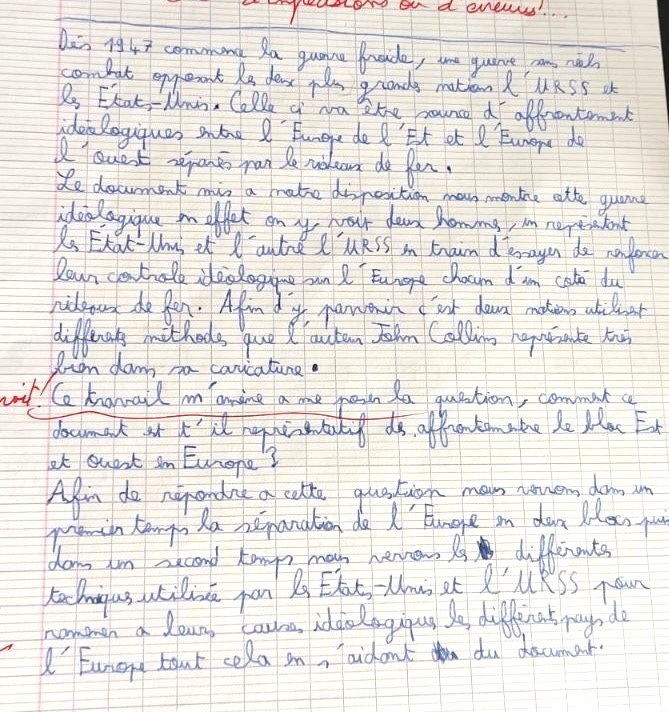 ou d'erreurs!...
Dès 1947 commence la guerre froide, une guerre sans réels
combat opposant les deux plus grands nations l'URSS et
les États-Unis. Celle ci va être source d'affrontement
idéologiques entre l'Europe de l'Est et l'Europe de
l'ouest séparés par le rideaux de fer.
Le document mis a notre disposition nous montre cette guerre
idéologique en effet on y voit deux hommes, un représentant
les État-Unis et l'autre l'URSS en train d'essayer de renforcer
leur controle idéologique sur l'Europe chacun d'un coté du
rideaux de fer. Afin d'y parvenir c'est deux nations utilisent
différents méthodes que l'auteur John Collins représente très
bien dans sa caricature.
Ce travail m'amène a me poser la question, comment ce
document est t'il représentatif des affrontements entre le bloc Est
et ouest en Europe ?
Afin de répondre a cette question nous verrons dans un
premier temps la séparation de l'Europe en deux blocs puis
dans un second temps nous verrons les différentes
techniques utilisée par les États-Unis et l'URSS pour
ramener a leurs causes idéologiques les différents pays de
l'Europe tout cela en s'aidant du document.